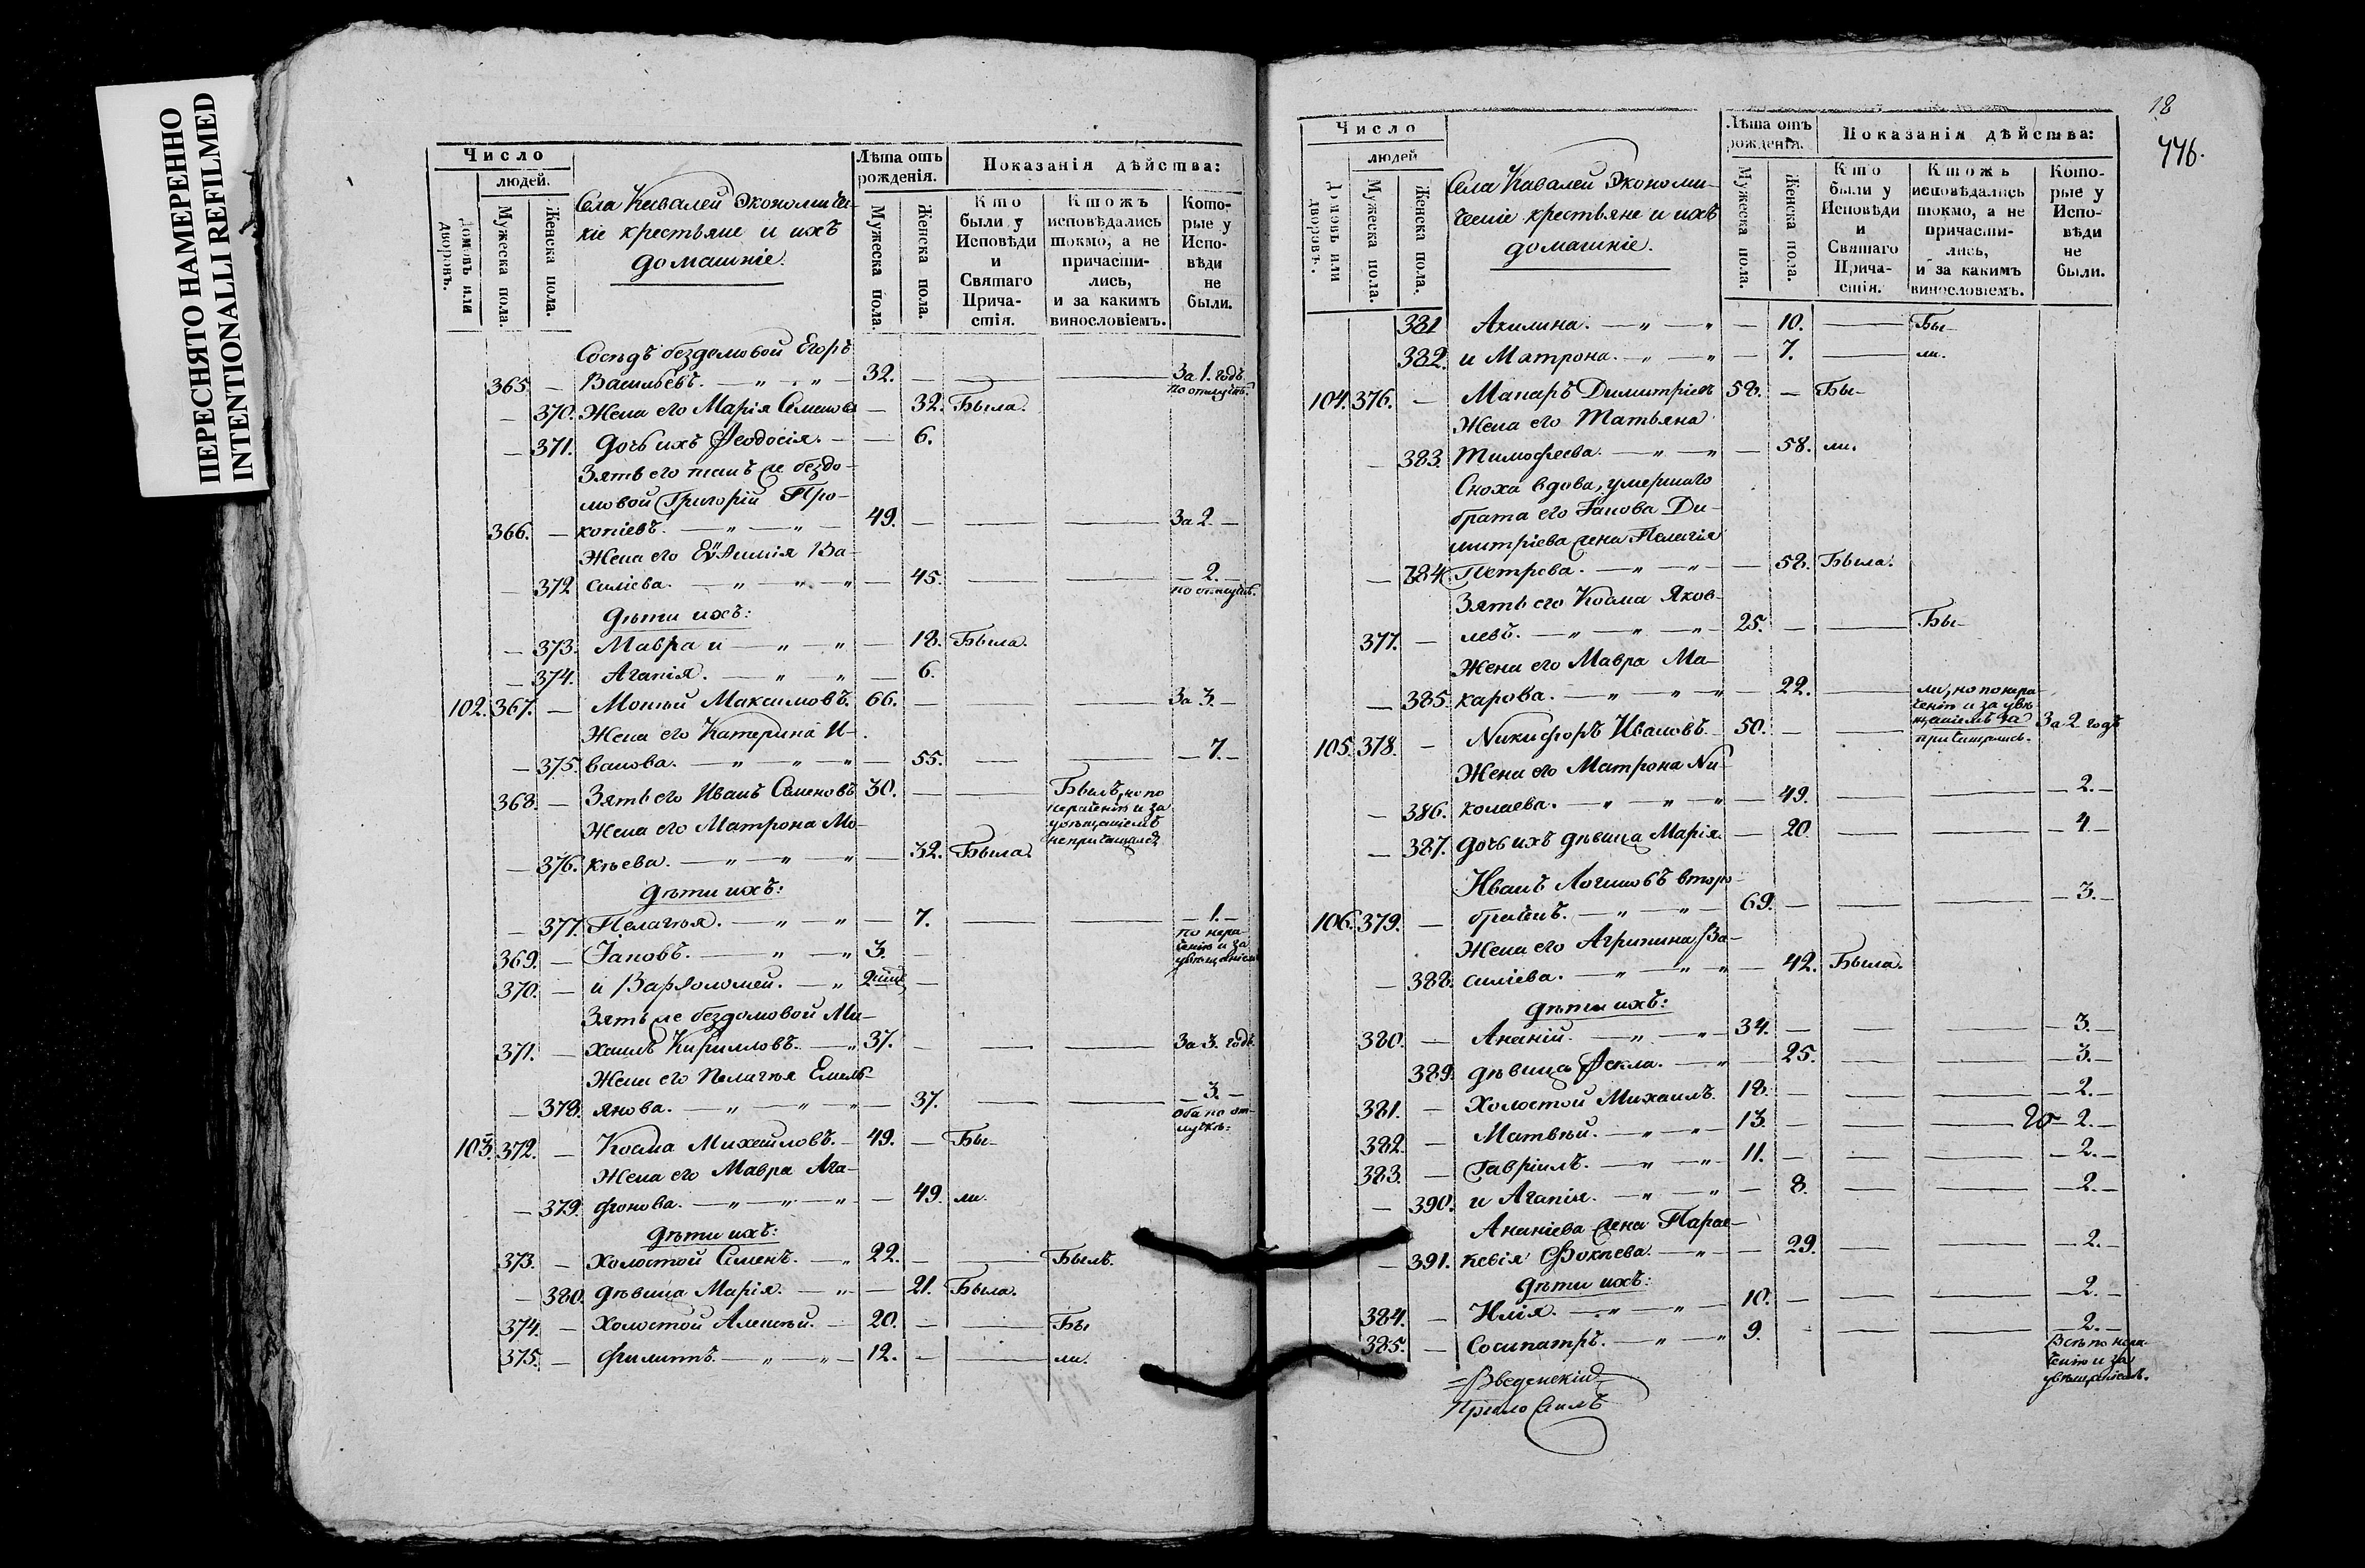 ПЕРЕСНЯТО НАМЕРЕННО
INTENTIONALLI REFILMED
Число
людей.
Домовъ или дворовъ.
Мужеска пола.
Женска пола.
Села Кивалей Экономиче-
кіе крестьяне и ихъ
домашніе.
Лѣта отъ рожденія.
Мужеска пола
Женска пола.
Показанія дѣйства:
Кто были у Исповѣди и Святаго Прича- стія.
Ктожъ исповѣдались токмо, а не причасти- лись, и за какимъ винословіемъ.
Кото- рые у Испо- вѣди не были.
Сосѣдъ бездомовой Егоръ
365. — Васильевъ. 32. — За 1. годъ
по отлучкѣ.
— 370. Жена его Марія Семенова — 32. Была.
— 371. Дочь ихъ Феодосія. — 6.
Зять его тещѣ бездо-
мовой Григорій Про-
366. — копіевъ. 49. — За 2. —
Жена его Еѵѳимія Ва-
— 372 силіева. — 45. — 2. —
по отлучкѣ.
дѣти ихъ:
— 373. Мавра и — 18. Была.
— 374. Агапія. — 6.
102. 367. — Мокѣй Максимовъ. 66. — За 3. —
Жена его Катерина И-
— 375. ванова. — 55. — 7. —
368. — Зять его Иванъ Семеновъ 30. — Былъ, но по
нераченію и за
увѣщаніемъ
непричащался
Жена его Матрона Мо-
— 376. кѣева. — 32. Была.
дѣти ихъ:
— 377. Пелагѣя. — 7. — 1. —
по нера-
ченію и за
увѣщаніемъ
369. — Іаковъ. 3. —
370. — и Варѳоломей.
Зять бездомовой Ми-
371. — хаилъ Кирилловъ. 37. — За 3. годъ.
Жена его Пелагѣя Емель-
— 378. янова. — 37. — 3. —
оба по от-
лучкѣ.
103. 372. — Косма Михайловъ. 49. — Бы-
Жена его Мавра Ага-
— 379. фонова. — 49. ли.
дѣти ихъ:
373. — Холостой Семенъ. 22. — Былъ.
— 380. дѣвица Марія. — 21. Была.
374. — Холостой Алексѣй. 20. — Бы
375. — Филиппъ. 12. — ли.
18
446.
Число
людей
Домовъ или дворовъ.
Мужеска пола.
Женска пола.
Села Кавалей Экономи-
ческіе крестьяне и ихъ
домашніе.
Лѣта отъ рожденія.
Мужеска пола.
Женска пола.
Показанія дѣйства:
Кто были у Исповѣди и Святаго Прича- стія.
Ктожъ исповѣдались токмо, а не причасти- лись, и за какимъ винословіемъ.
Кото- рые у Испо- вѣди не были.
381 Акилина. — 10. — Бы-
382. и Матрона. — 7. — ли.
104. 376. — Макаръ Димитріевъ 58. — Бы-
Жена его Татьяна
— 383. Тимофеева. — 58. ли.
Сноха вдова, умершаго
брата его Іакова Ди-
митріева жена Пелагія
— 384 Петрова. — 58. Была.
Зять его Косма Яков-
377. — левъ. 25. — Бы-
Жена его Мавра Ма-
— 385. карова. — 22. — ли, но по нера-
ченію и за увѣ
щаніемъ не
причащались.
105. 378. — Никифоръ Ивановъ. 50. — За 2 годъ
Жена его Матрона Ни-
— 386. колаева. — 49. — 2. —
— 387. Дочь ихъ дѣвица Марія. — 20. — 4. —
Иванъ Логиновъ второ-
106. 379. — брачнъ. 69. — 3. —
Жена его Агрипина Ва-
— 388. силіева. — 42. Была.
дѣти ихъ:
380. — Ананій. 34. — 3. —
389. дѣвица Фекла. — 25. — 3. —
381. — Холостой Михаилъ. 18. — 2. —
382. — Матвѣй. 13. — 2. —
383. — Гавріилъ. 11. — 2. —
— 390. и Агапія. — 8. — 2. —
Ананіева жена Парас-
— 391. кевія Фокѣева. — 29. — 2. —
дѣти ихъ:
384. — Илія. 10. — 2. —
385. — Сосипатръ. 9. — 2. —
Всѣ по нера-
ченію и за
увѣщаніемъ.
Введенскій